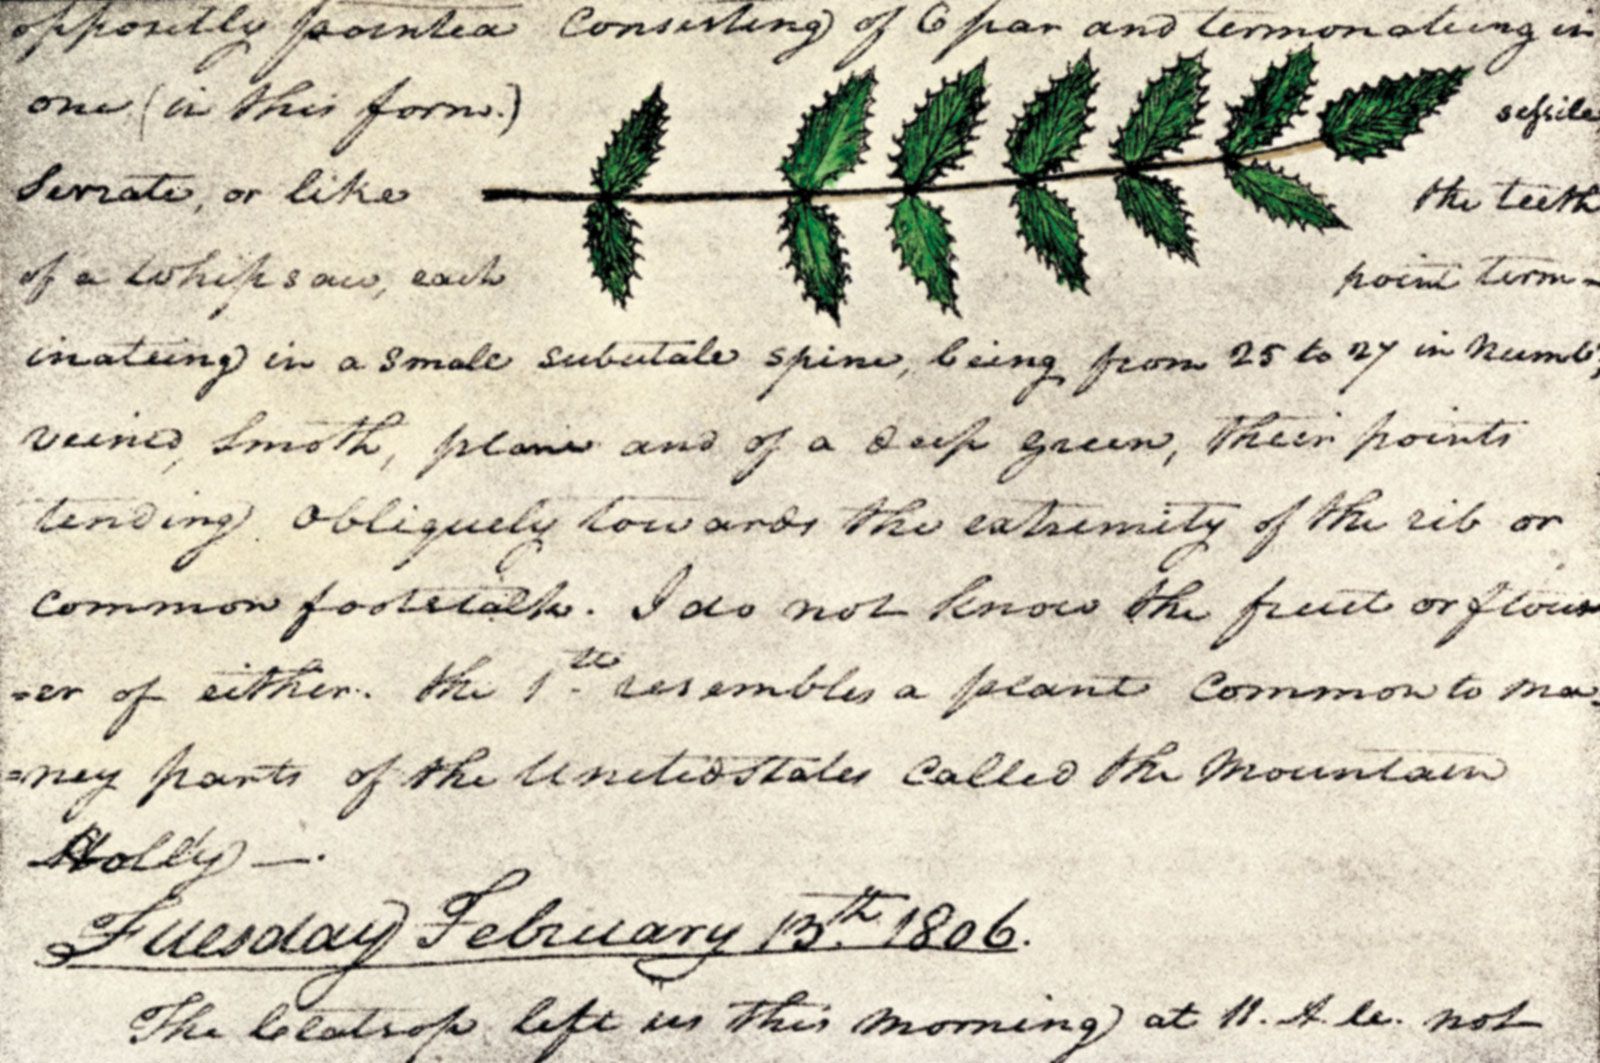 oppositly pointed Consisting of 6 par and termonateing in
one (in this form.) sessile
Serrate, or like the teeth
of a whipsaw, each point term-
inateing in a small subutale spine, being from 25 to 27 in numbr,
veined, Smoth, plane and of a deep green, their points
tending obliquely towards the extremity of the rib or
common footstalk. I do not know the fruit or flow
=er of either. the 1st resembles a plant common to ma-
=ney parts of the United States called the Mountain
Holly —.
Tuesday February 13th 1806.
The Clatsop left us this morning at 11. A. M. not